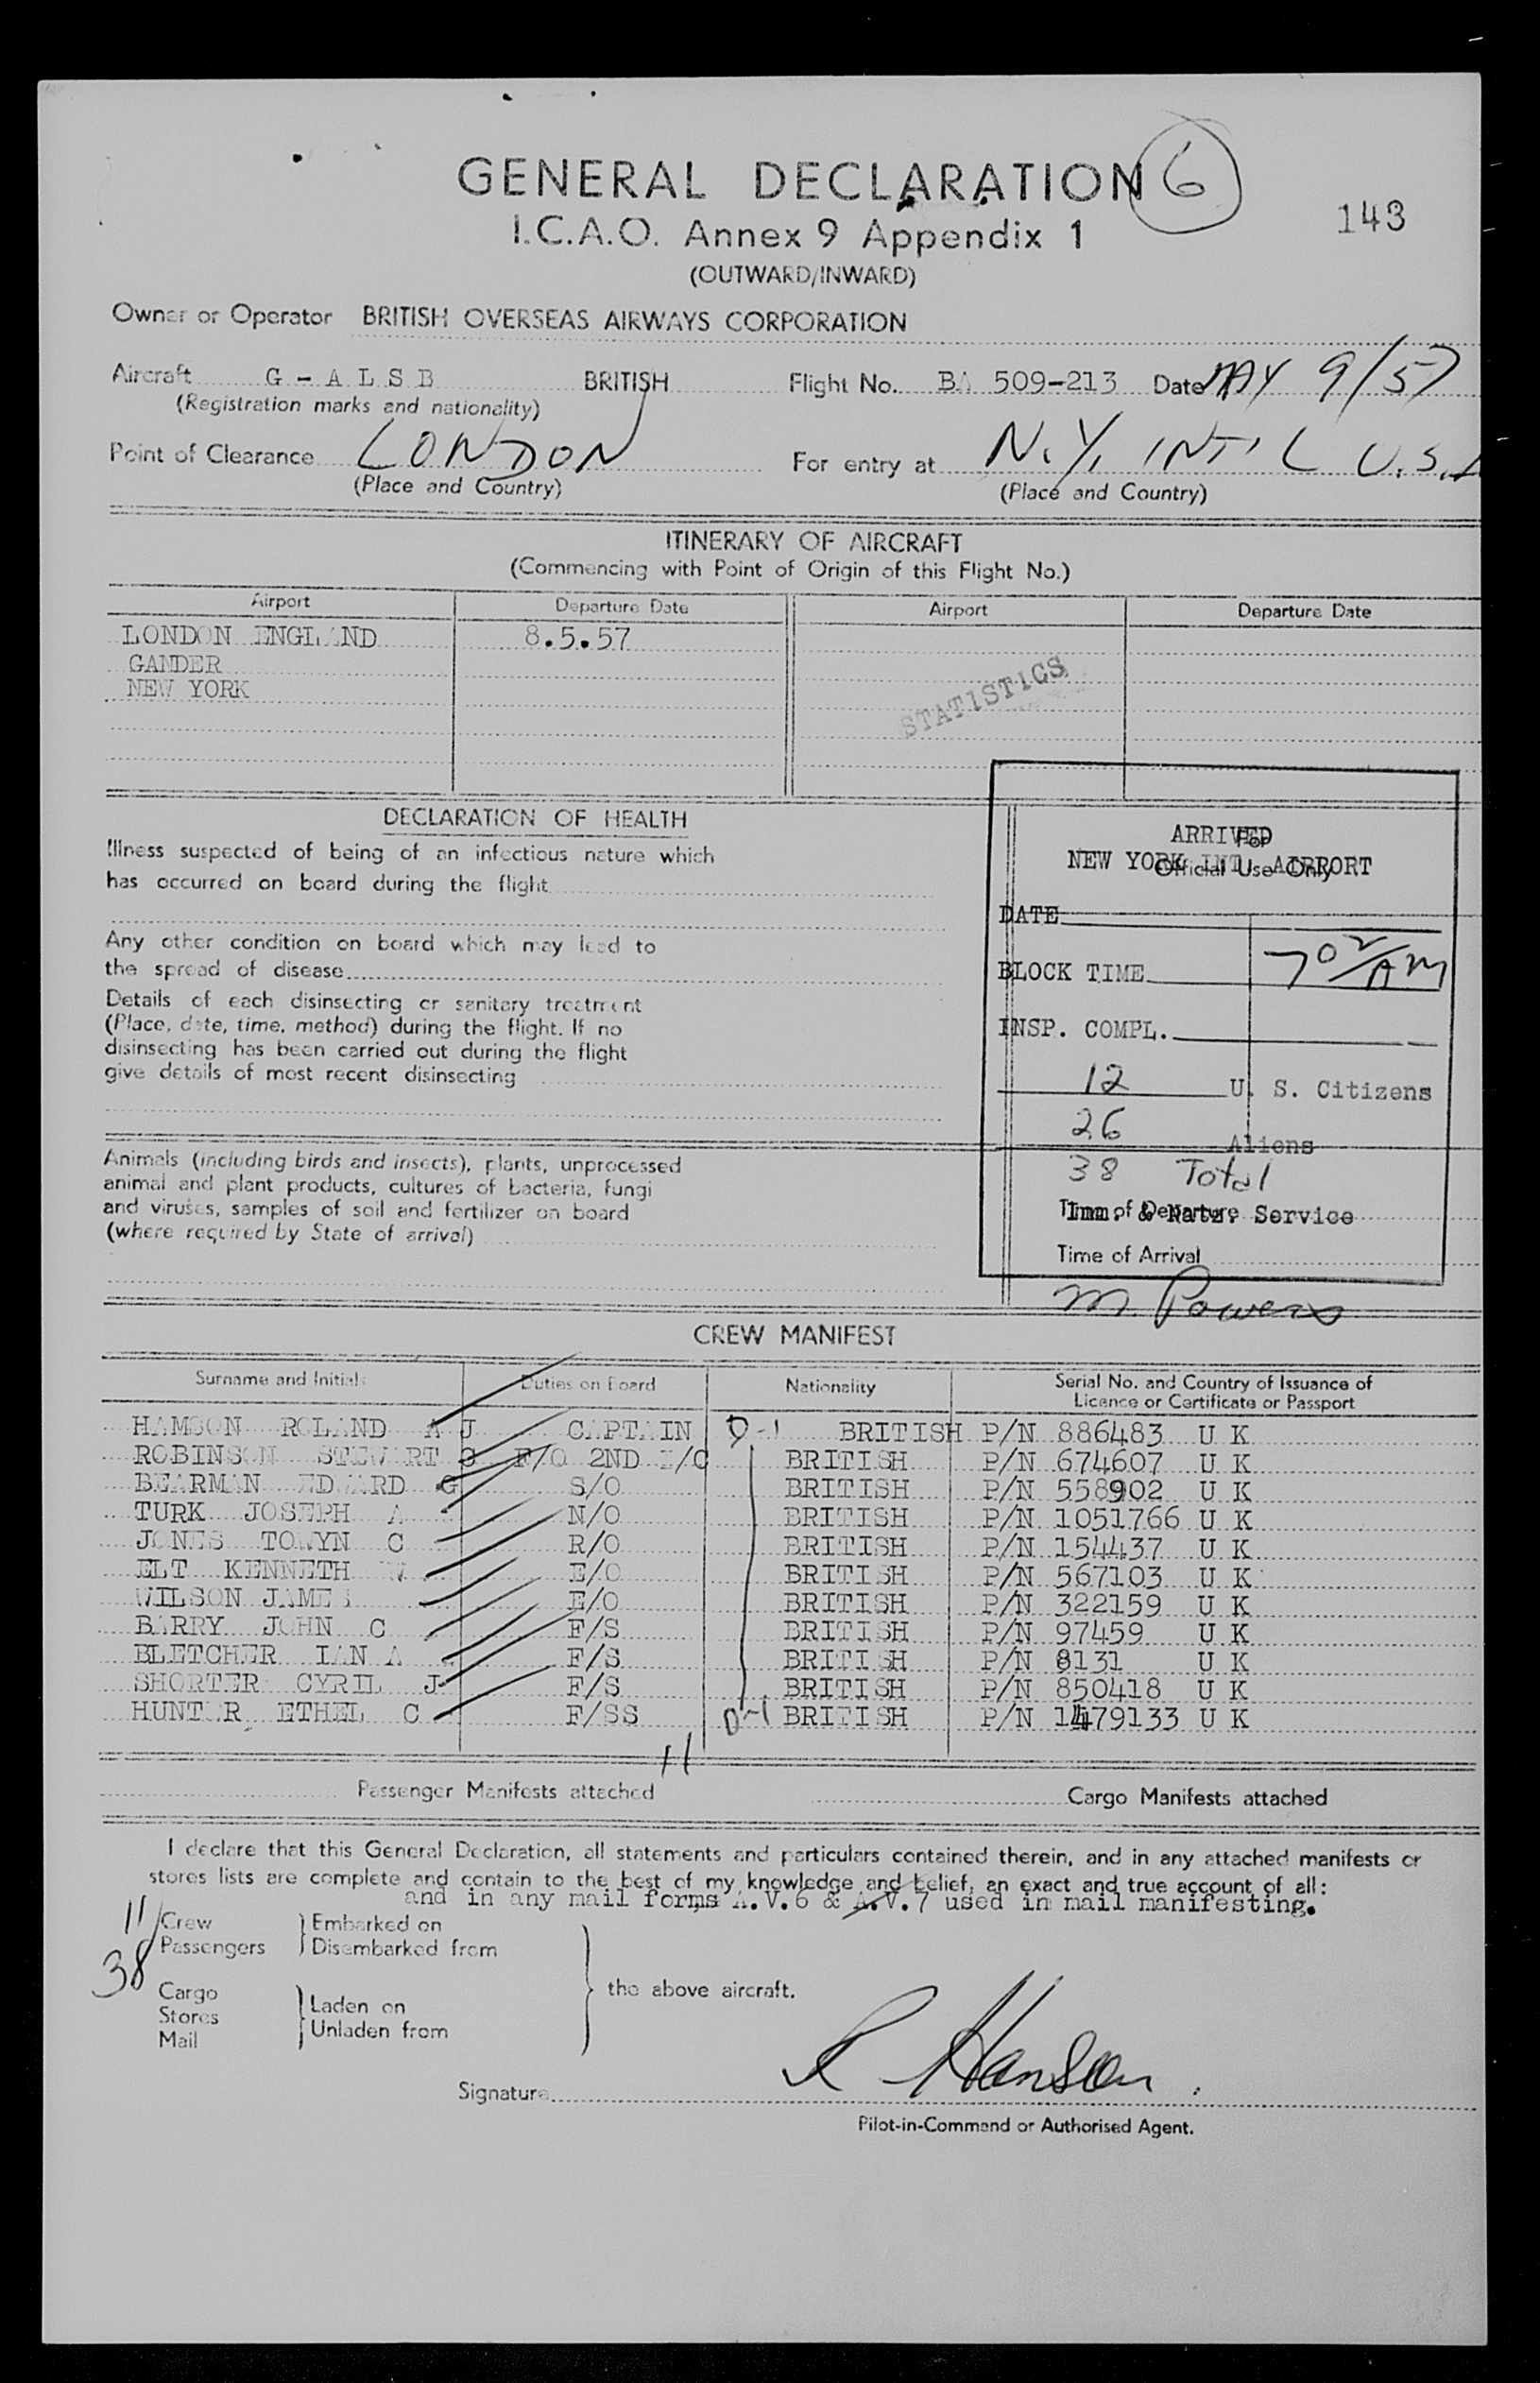 GENERAL DECLARATION 6
143
I.C.A.O. Annex 9 Appendix 1
(OUTWARD/INWARD)
Owner or Operator BRITISH OVERSEAS AIRWAYS CORPORATION
Aircraft G - A L S B BRITISH Flight No. BA 509-213 Date MAY 9/57
(Registration marks and nationality)
Point of Clearance LONDON For entry at N.Y. INT'L U.S.A
(Place and Country) (Place and Country)
ITINERARY OF AIRCRAFT
(Commencing with Point of Origin of this Flight No.)
Airport Departure Date Airport Departure Date
LONDON ENGLAND 8.5.57
GANDER
NEW YORK
STATISTICS
DECLARATION OF HEALTH
Illness suspected of being of an infectious nature which
has occurred on board during the flight
Any other condition on board which may lead to
the spread of disease
Details of each disinsecting or sanitary treatment
(Place, date, time, method) during the flight. If no
disinsecting has been carried out during the flight
give details of most recent disinsecting
Animals (including birds and insects), plants, unprocessed
animal and plant products, cultures of bacteria, fungi
and viruses, samples of soil and fertilizer on board
(where required by State of arrival)
For
Official Use Only
ARRIVED
NEW YORK INTL AIRPORT
DATE
BLOCK TIME 7 02/AM
INSP. COMPL.
12 U. S. Citizens
26 Aliens
38 Total
Time of Departure
Imm. & Natz. Service
Time of Arrival
M. Powers
CREW MANIFEST
Surname and Initials Duties on Board Nationality Serial No. and Country of Issuance of
Licence or Certificate or Passport
HAMSON ROLAND A J CAPTAIN D-1 BRITISH P/N 886483 U K
ROBINSON STEWART G F/O 2ND I/C BRITISH P/N 674607 U K
BEARMAN EDWARD G S/O BRITISH P/N 558902 U K
TURK JOSEPH A N/O BRITISH P/N 1051766 U K
JONES TOWYN C R/O BRITISH P/N 154437 U K
ELT KENNETH W E/O BRITISH P/N 567103 U K
WILSON JAMES E/O BRITISH P/N 322159 U K
BARRY JOHN C F/S BRITISH P/N 97459 U K
BLETCHER IAN A F/S BRITISH P/N 8131 U K
SHORTER CYRIL J F/S BRITISH P/N 850418 U K
HUNTER ETHEL C F/SS D-1 BRITISH P/N 1479133 U K
11
Passenger Manifests attached Cargo Manifests attached
I declare that this General Declaration, all statements and particulars contained therein, and in any attached manifests or
stores lists are complete and contain to the best of my knowledge and belief, an exact and true account of all:
and in any mail forms A.V.6 & A.V.7 used in mail manifesting.
11 Crew Embarked on
38 Passengers Disembarked from
the above aircraft.
Cargo Laden on
Stores Unladen from
Mail
Signature R Hanson
Pilot-in-Command or Authorised Agent.